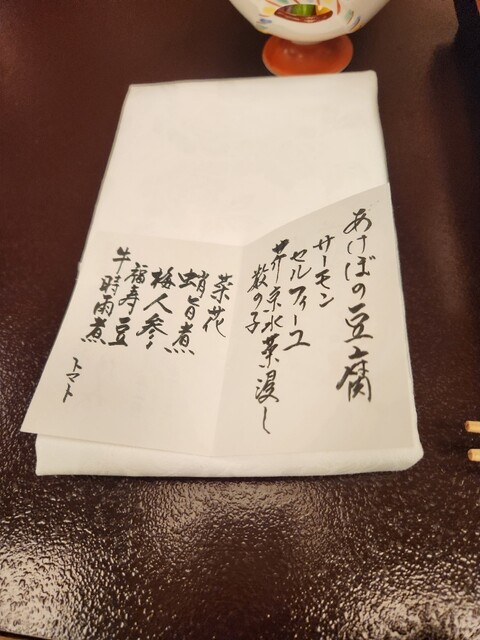 あけぼの豆腐
サーモン
セルフィーユ
芹京水菜浸し
数の子
菜花
蛸旨煮
梅人参
福寿豆
牛時雨煮
トマト